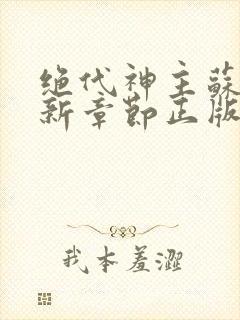 绝代神主蘇
新章節正版
我本羞澀